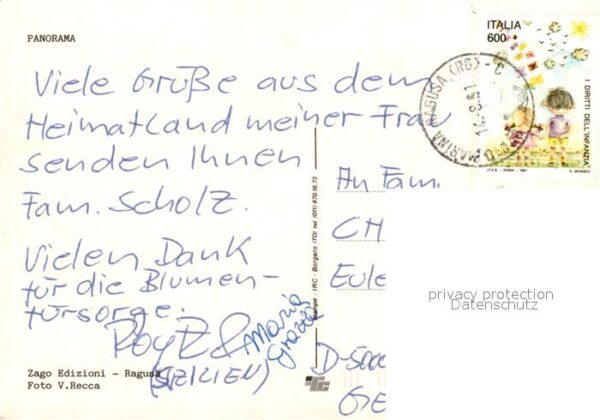 PANORAMA
Viele Grüße aus dem
Heimatland meiner Frau
senden Ihnen
Fam. Scholz.
Vielen Dank
für die Blumen-
fürsorge.
&
Maria
(SIZILIEN)
Zago Edizioni - Ragusa
Foto V.Recca
Stampa - IRC - Borgaro (TO) tel. (011) 470.16.73
ITALIA
600
I DIRITTI DELL'INFANZIA
I.P.Z.S. - ROMA - 1991
MARINA RAGUSA (RG)
14.8.91
An Fam.
CH
Eule
D-500
GE
privacy protection
Datenschutz